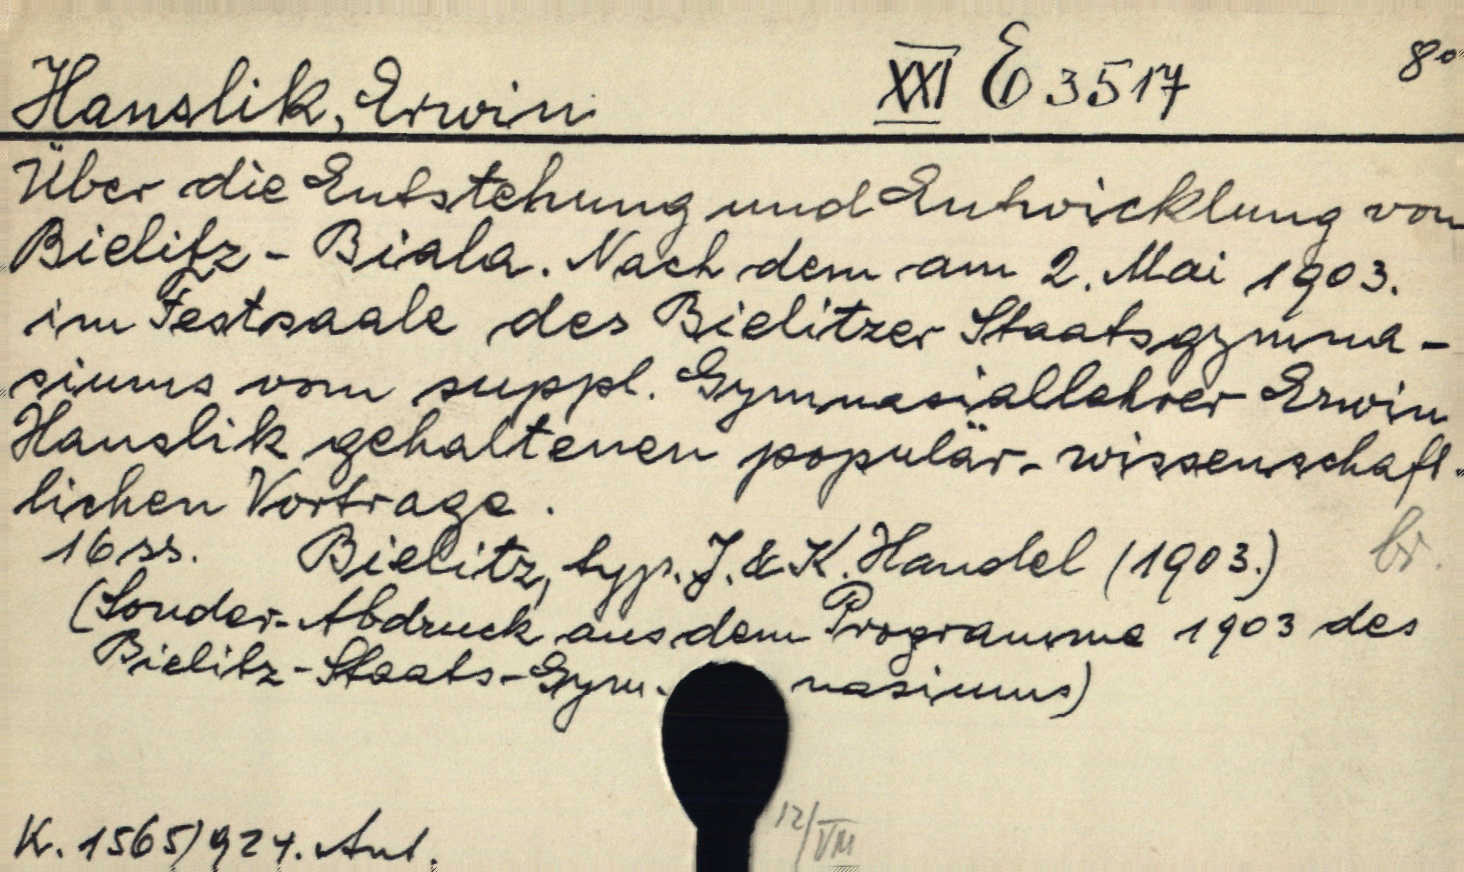 Hanslik, Erwin XXI E 3517 8°
Über die Entstehung und Entwicklung von
Bielitz - Biala. Nach dem am 2. Mai 1903.
im Festsaale des Bielitzer Staatsgymna-
siums vom suppl. Gymnasiallehrer Erwin
Hanslik gehaltenen populär-wissenschaft-
lichen Vortrage.
16 ss. Bielitz, typ. J. & K. Handel (1903.) br.
(Sonder-Abdruck aus dem Programme 1903 des
Bielitz-Staats-Gym- nasiums)
K. 1565/924. Ant.
12/VIII